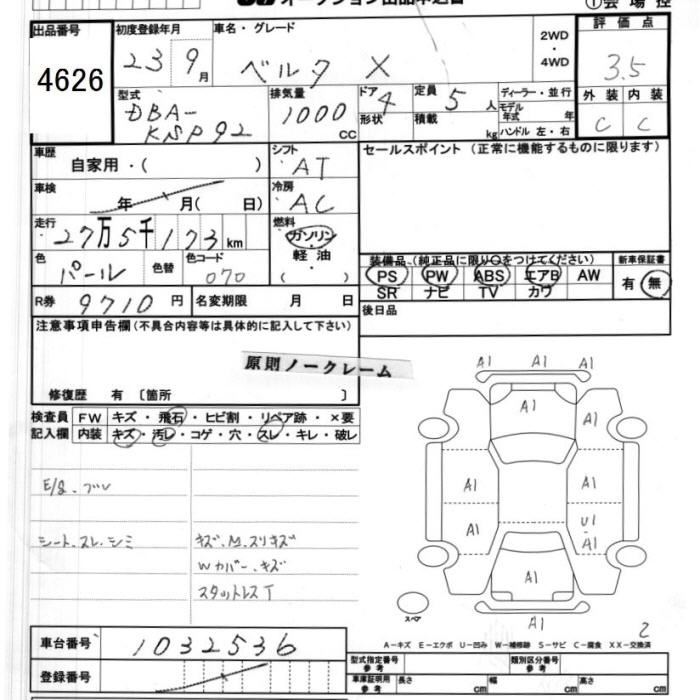 オークション出品申込書
①会場控
出品番号 初度登録年月 車名・グレード 2WD・4WD 評価点
4626 23 9月 ベルタ X 3.5
外装 内装
C C
型式 排気量 ドア 形状 定員 積載 ディーラー・並行
DBA- 1000 4 5人 モデル年式 年
KSP92 CC kg ハンドル 左・右
車歴 シフト セールスポイント (正常に機能するものに限ります)
自家用・( ) AT
車検 冷房
年 月( 日) AC
走行 燃料
27万5千173km ガソリン・軽油・( )
色 色替 色コード
パール 070
装備品(純正品に限り○をつけてください) 新車保証書
PS PW ABS エアB AW 有・無
SR ナビ TV カワ
R券 9710円 名変期限 月 日
後日品
注意事項申告欄(不具合内容等は具体的に記入して下さい)
原則ノークレーム
修復歴 有〔箇所 〕
検査員 FW キズ・飛石・ヒビ割・リペア跡・×要
記入欄 内装 キズ・汚レ・コゲ・穴・スレ・キレ・破レ
A1 A1 A1
A1
A1 A1
A1 A1
A1 U1
A1
A1
A1
E/g.ブレ
シート.スレ.シミ キズ.M.スリキズ
Wカバー.キズ
スタットレスT
スペア
2
A-キズ E-エクボ U-凹み W-補修跡 S-サビ C-腐食 XX-交換済
車台番号 1032536
型式指定番号 参考 類別区分番号 参考
登録番号
車庫証明用 参考 長さ cm 幅 cm 高さ cm